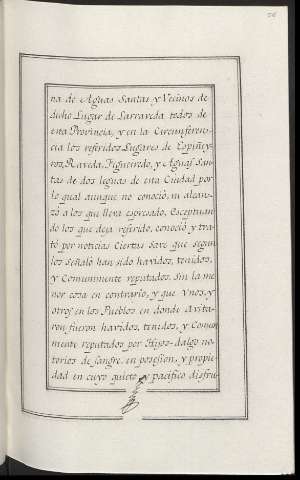 na de Aguas Santas y Vecinos de
dicho Lugar de Larraveda todos de
esta Provincia, y en la Circunferen-
cia los referidos Lugares de Espiñey-
ros, Raveda, Figueiredo, y Aguas San-
tas de dos leguas de esta Ciudad por
lo qual aunque no conoció, ni alcan-
zó a los que lleva espresado, Esceptuan-
do los que deja referido, conoció y tra-
tó por noticias Ciertas save que segun
los Señaló han sido havidos, tenidos,
y Comunmente reputados, Sin la me
nor cosa en contrario, y que Unos, y
otros en los Pueblos en donde avita-
ron fueron havidos, tenidos, y Comun
mente reputados por Hijos-dalgo no-
torios de sangre, en posesion, y propie-
dad en cuyo quieto y pacifico disfru-